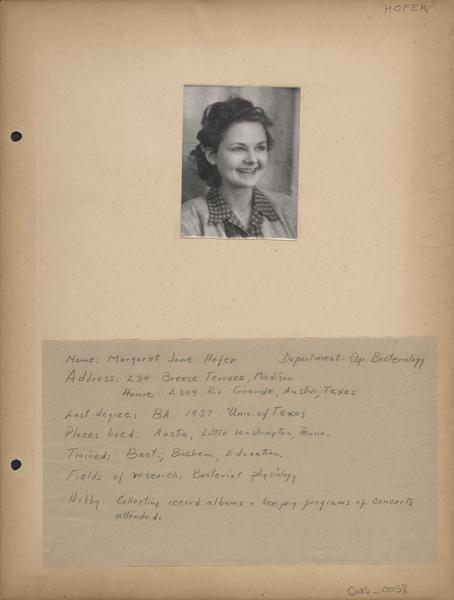 HOFER
Name: Margaret Jane Hofer Department: Agr. Bacteriology
Address: 234 Breese Terrace, Madison
Home: 2309 Rio Grande, Austin, Texas
Last degree: BA. 1937 Univ. of Texas
Places lived: Austin, Little Washington, Penna.
Trained: Bact.; Biochem, Education.
Fields of research: Bacterial physiology
Hobby: Collecting record albums & keeping programs of concerts
attended.
GWS_0058